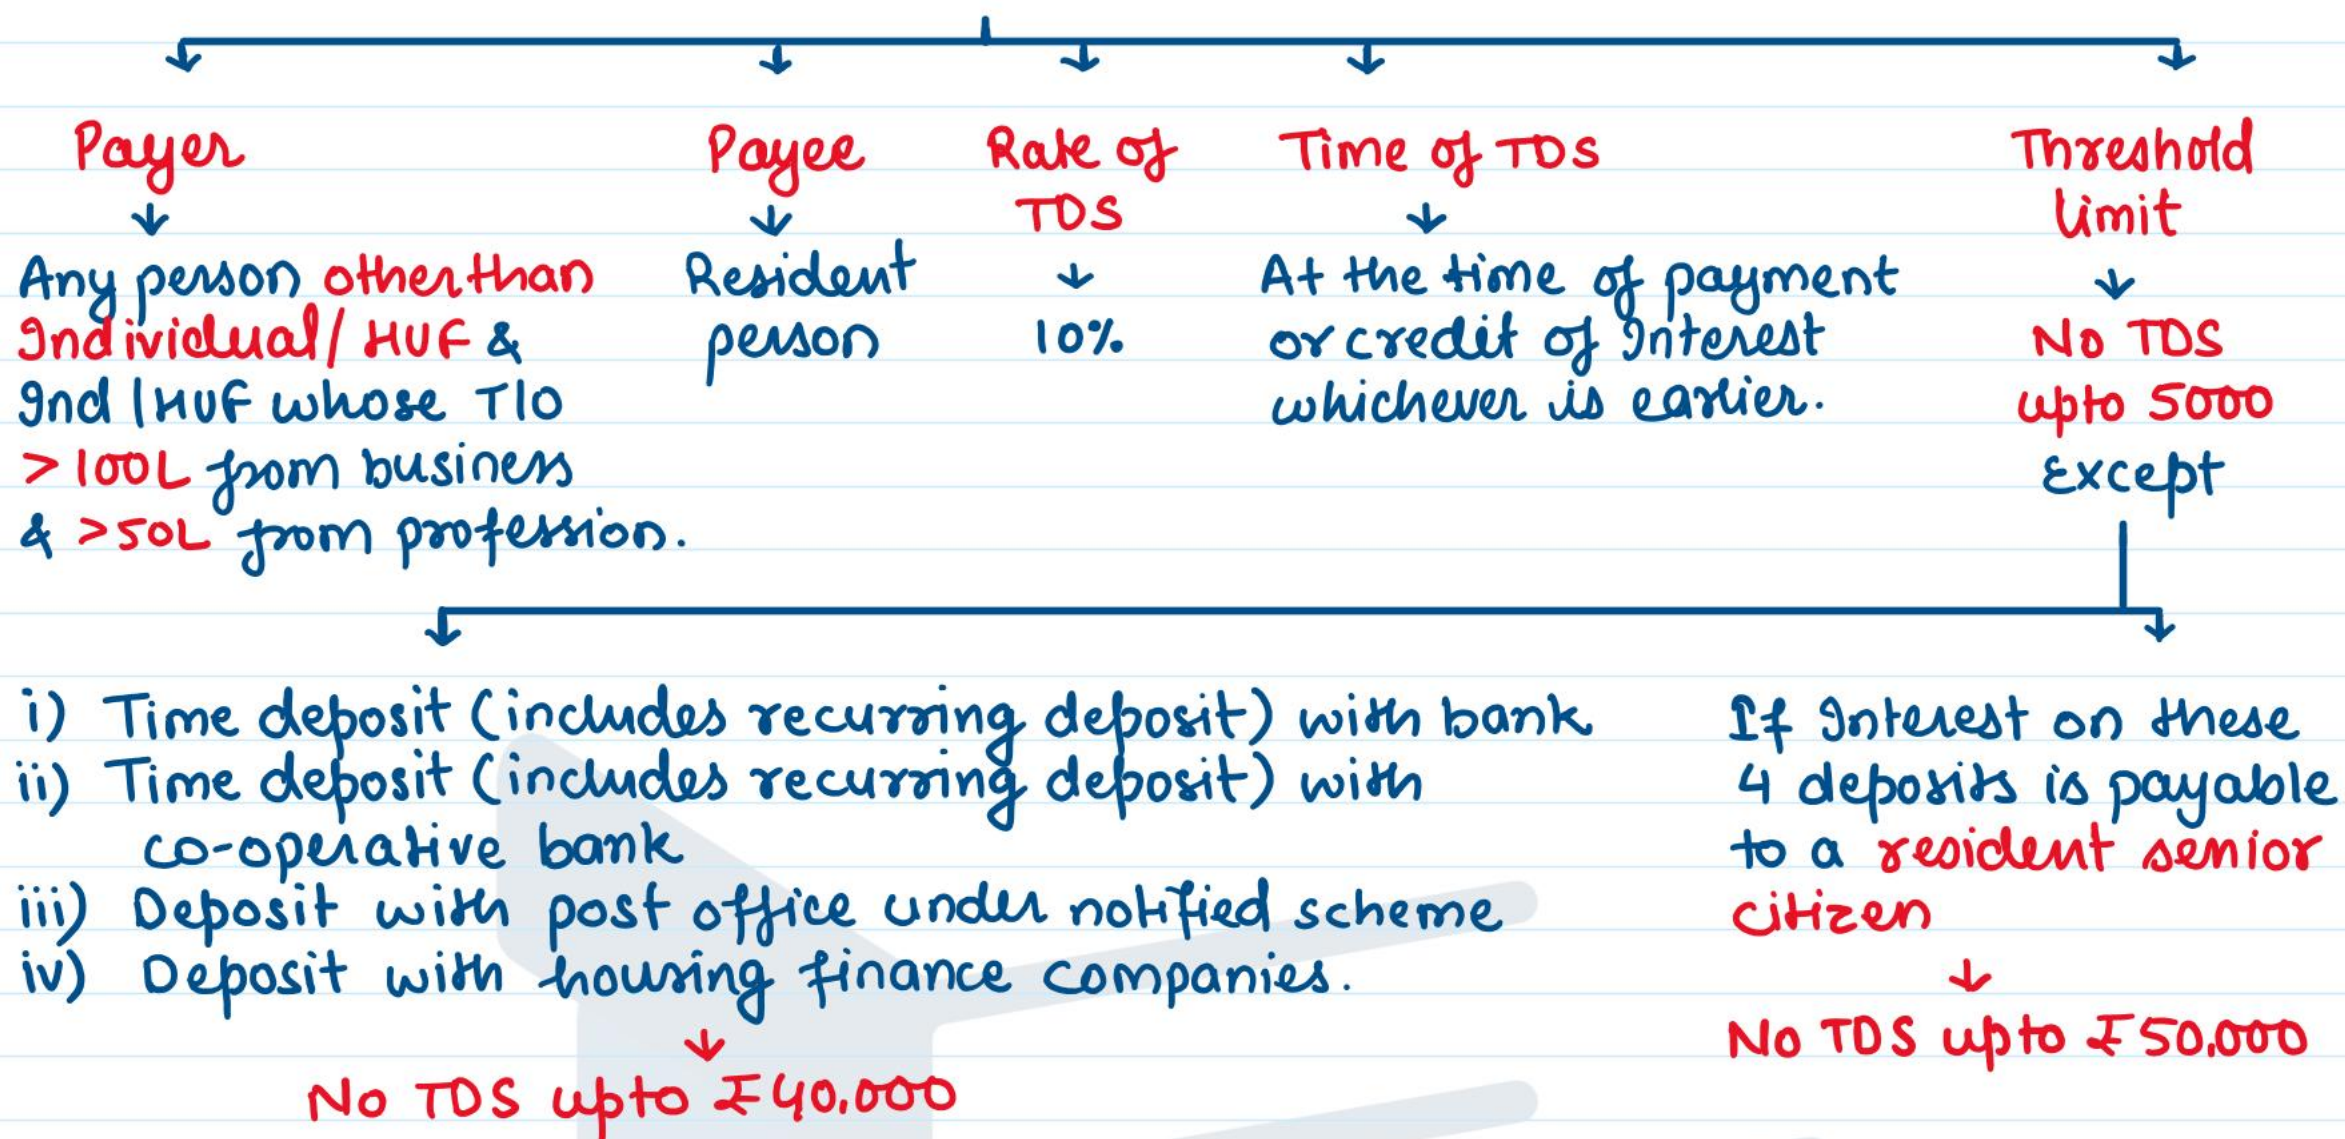 Payer
Any person other than
Individual/ HUF &
Ind/HUF whose T/O
>100L from business
& >50L from profession.
Payee
Resident
person
Rate of
TDS
10%
Time of TDS
At the time of payment
or credit of Interest
whichever is earlier.
Threshold
limit
No TDS
upto 5000
Except
i) Time deposit (includes recurring deposit) with bank
ii) Time deposit (includes recurring deposit) with
co-operative bank
iii) Deposit with post office under notified scheme
iv) Deposit with housing finance companies.
No TDS upto ₹40,000
If Interest on these
4 deposits is payable
to a resident senior
citizen
No TDS upto ₹50,000